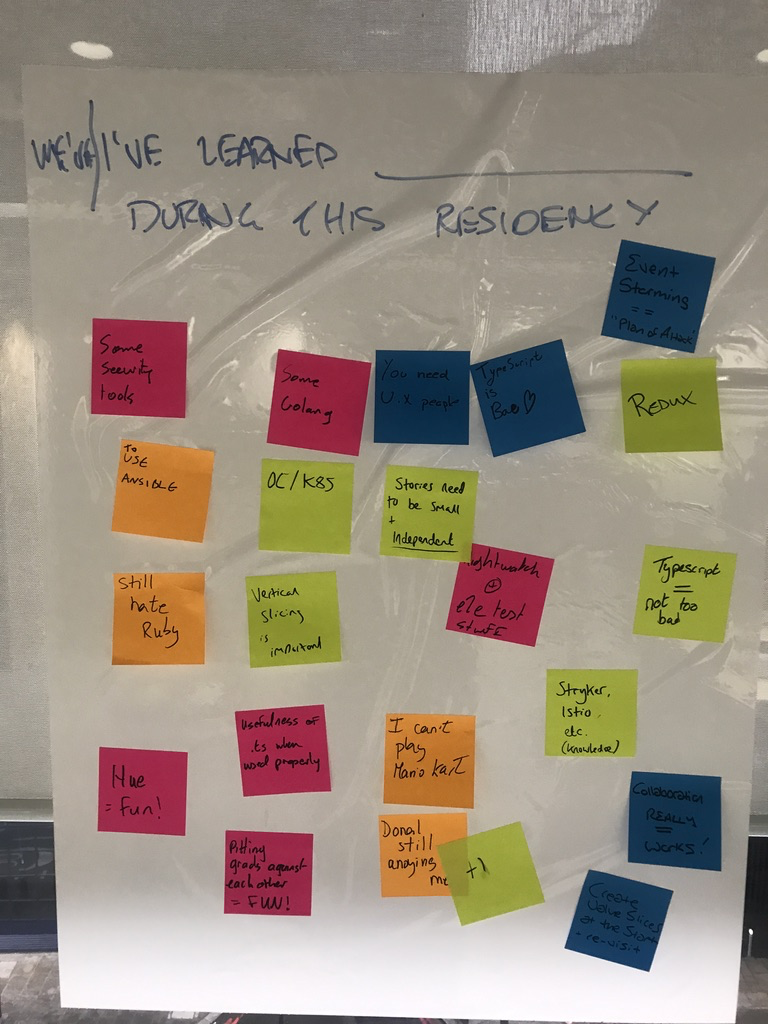 WE'VE/I'VE LEARNED ____________
DURING THIS RESIDENCY
Event
Storming
==
"Plan of Attack"
Some
security
tools
Some
Golang
You need
U.X people
TypeScript
is
Bae♡
REDUX
To
USE
ANSIBLE
OC/K8S
Stories need
to be small
+
Independent
Nightwatch
⊕
e2e test
stuff
Typescript
=
not too
bad
Still
hate
Ruby
Vertical
slicing
is
important
Stryker,
Istio,
etc.
(knowledge)
Usefulness of
.ts when
used properly
I can't
play
Mario Kart
Hue
= Fun!
Collaboration
REALLY
=
WORKS!
Pitting
grads against
each other
= FUN!
Donal
still
anoying
me
+1
Create
Value Slices
at the Start
+ re-visit